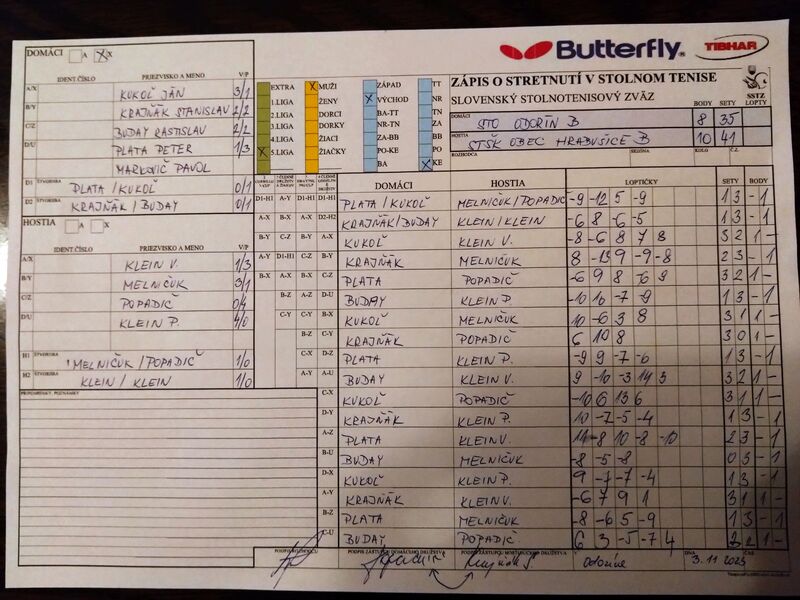 Butterfly TIBHAR
DOMÁCI A X X
IDENT.ČÍSLO PRIEZVISKO A MENO V/P
A/X KUKOĽ JÁN 3/1
B/Y KRAJŇÁK STANISLAV 2/2
C/Z BUDAY RASTISLAV 2/2
D/U PLATA PETER 1/3
MARKOVIČ PAVOL
D1 ŠTVORHRA PLATA / KUKOĽ 0/1
D2 ŠTVORHRA KRAJŇÁK / BUDAY 0/1
HOSTIA A X
IDENT.ČÍSLO PRIEZVISKO A MENO V/P
A/X KLEIN V. 1/3
B/Y MELNIČUK 3/1
C/Z POPADIČ 0/4
D/U KLEIN P. 4/0
H1 ŠTVORHRA MELNIČUK / POPADIČ 1/0
H2 ŠTVORHRA KLEIN / KLEIN 1/0
PRIPOMIENKY, POZNÁMKY
EXTRA X MUŽI ZÁPAD TT
1.LIGA ŽENY X VÝCHOD NR
2.LIGA DORCI BA-TT TN
3.LIGA DORKY TN-NR ZA
4.LIGA ŽIACI ZA-BB BB
X 5.LIGA ŽIAČKY PO-KE PO
BA X KE
ZÁPIS O STRETNUTÍ V STOLNOM TENISE
SLOVENSKÝ STOLNOTENISOVÝ ZVÄZ SSTZ
BODY SETY LOPTY
DOMÁCI STO ODORÍN B 8 35
HOSTIA STŠK OBEC HRABUŠICE B 10 41
ROZHODCA SEZÓNA KOLO Č.Z.
DOMÁCI HOSTIA LOPTIČKY SETY BODY
D1-H1 A-Y A-Y D1-H1 PLATA / KUKOĽ MELNIČUK/POPADIČ -9 -12 5 -9 1 3 - 1
A-X B-X A-X D2-H2 KRAJŇÁK/BUDAY KLEIN/KLEIN -6 8 -6 -5 1 3 - 1
B-Y C-Z B-Y A-X KUKOĽ KLEIN V. -8 -6 8 7 8 3 2 1 -
A-Y D1-H1 C-Z B-Y KRAJŇÁK MELNIČUK 8 -13 9 -9 -8 2 3 - 1
B-X A-X B-X C-Z PLATA POPADIČ -6 9 8 -6 9 3 2 1 -
B-Z A-Z D-U BUDAY KLEIN P. -10 10 -7 -9 1 3 - 1
C-Y C-Y A-Y KUKOĽ MELNIČUK 10 -6 3 8 3 1 1 -
B-Z C-Y KRAJŇÁK POPADIČ 6 10 8 3 0 1 -
C-X D-Z PLATA KLEIN P. -9 9 -7 -6 1 3 - 1
A-Y A-U BUDAY KLEIN V. 9 -10 -3 14 3 3 2 1 -
C-X KUKOĽ POPADIČ -10 6 13 6 3 1 1 -
D-Y KRAJŇÁK KLEIN P. 10 -7 -5 -4 1 3 - 1
A-Z PLATA KLEIN V. 14 -8 10 -8 -10 2 3 - 1
B-U BUDAY MELNIČUK -8 -5 -8 0 3 - 1
D-X KUKOĽ KLEIN P. 9 -7 -7 -4 1 3 - 1
A-Y KRAJŇÁK KLEIN V. -6 7 9 1 3 1 1 -
B-Z PLATA MELNIČUK -8 -6 5 -9 1 3 - 1
C-U BUDAY POPADIČ 6 3 -5 -7 4 3 2 1 -
PODPIS ROZHODCU PODPIS ZÁSTUPCU DOMÁCEHO DRUŽSTVA PODPIS ZÁSTUPCU HOSŤUJÚCEHO DRUŽSTVA V DŇA ČAS
Odoríne 3.11.2023